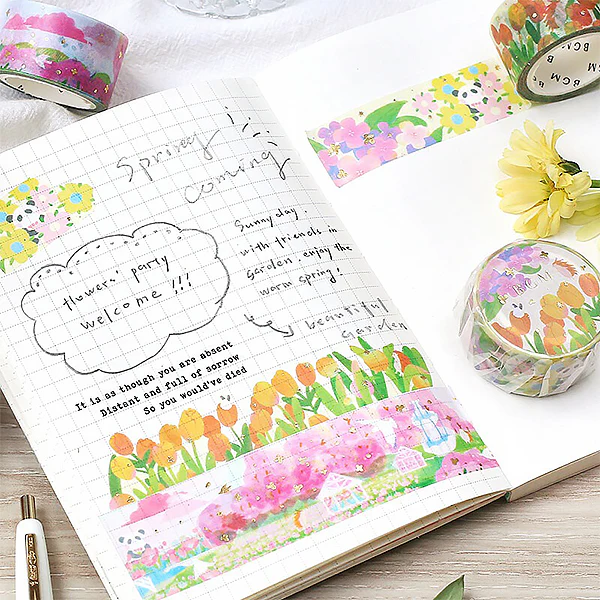 Spring
coming
Sunny day.
with friends in
garden. enjoy the
warm spring!
beautiful
garden
flowers' party
welcome!!!
It is as though you are absent
Distant and full of sorrow
So you would've died
BGM